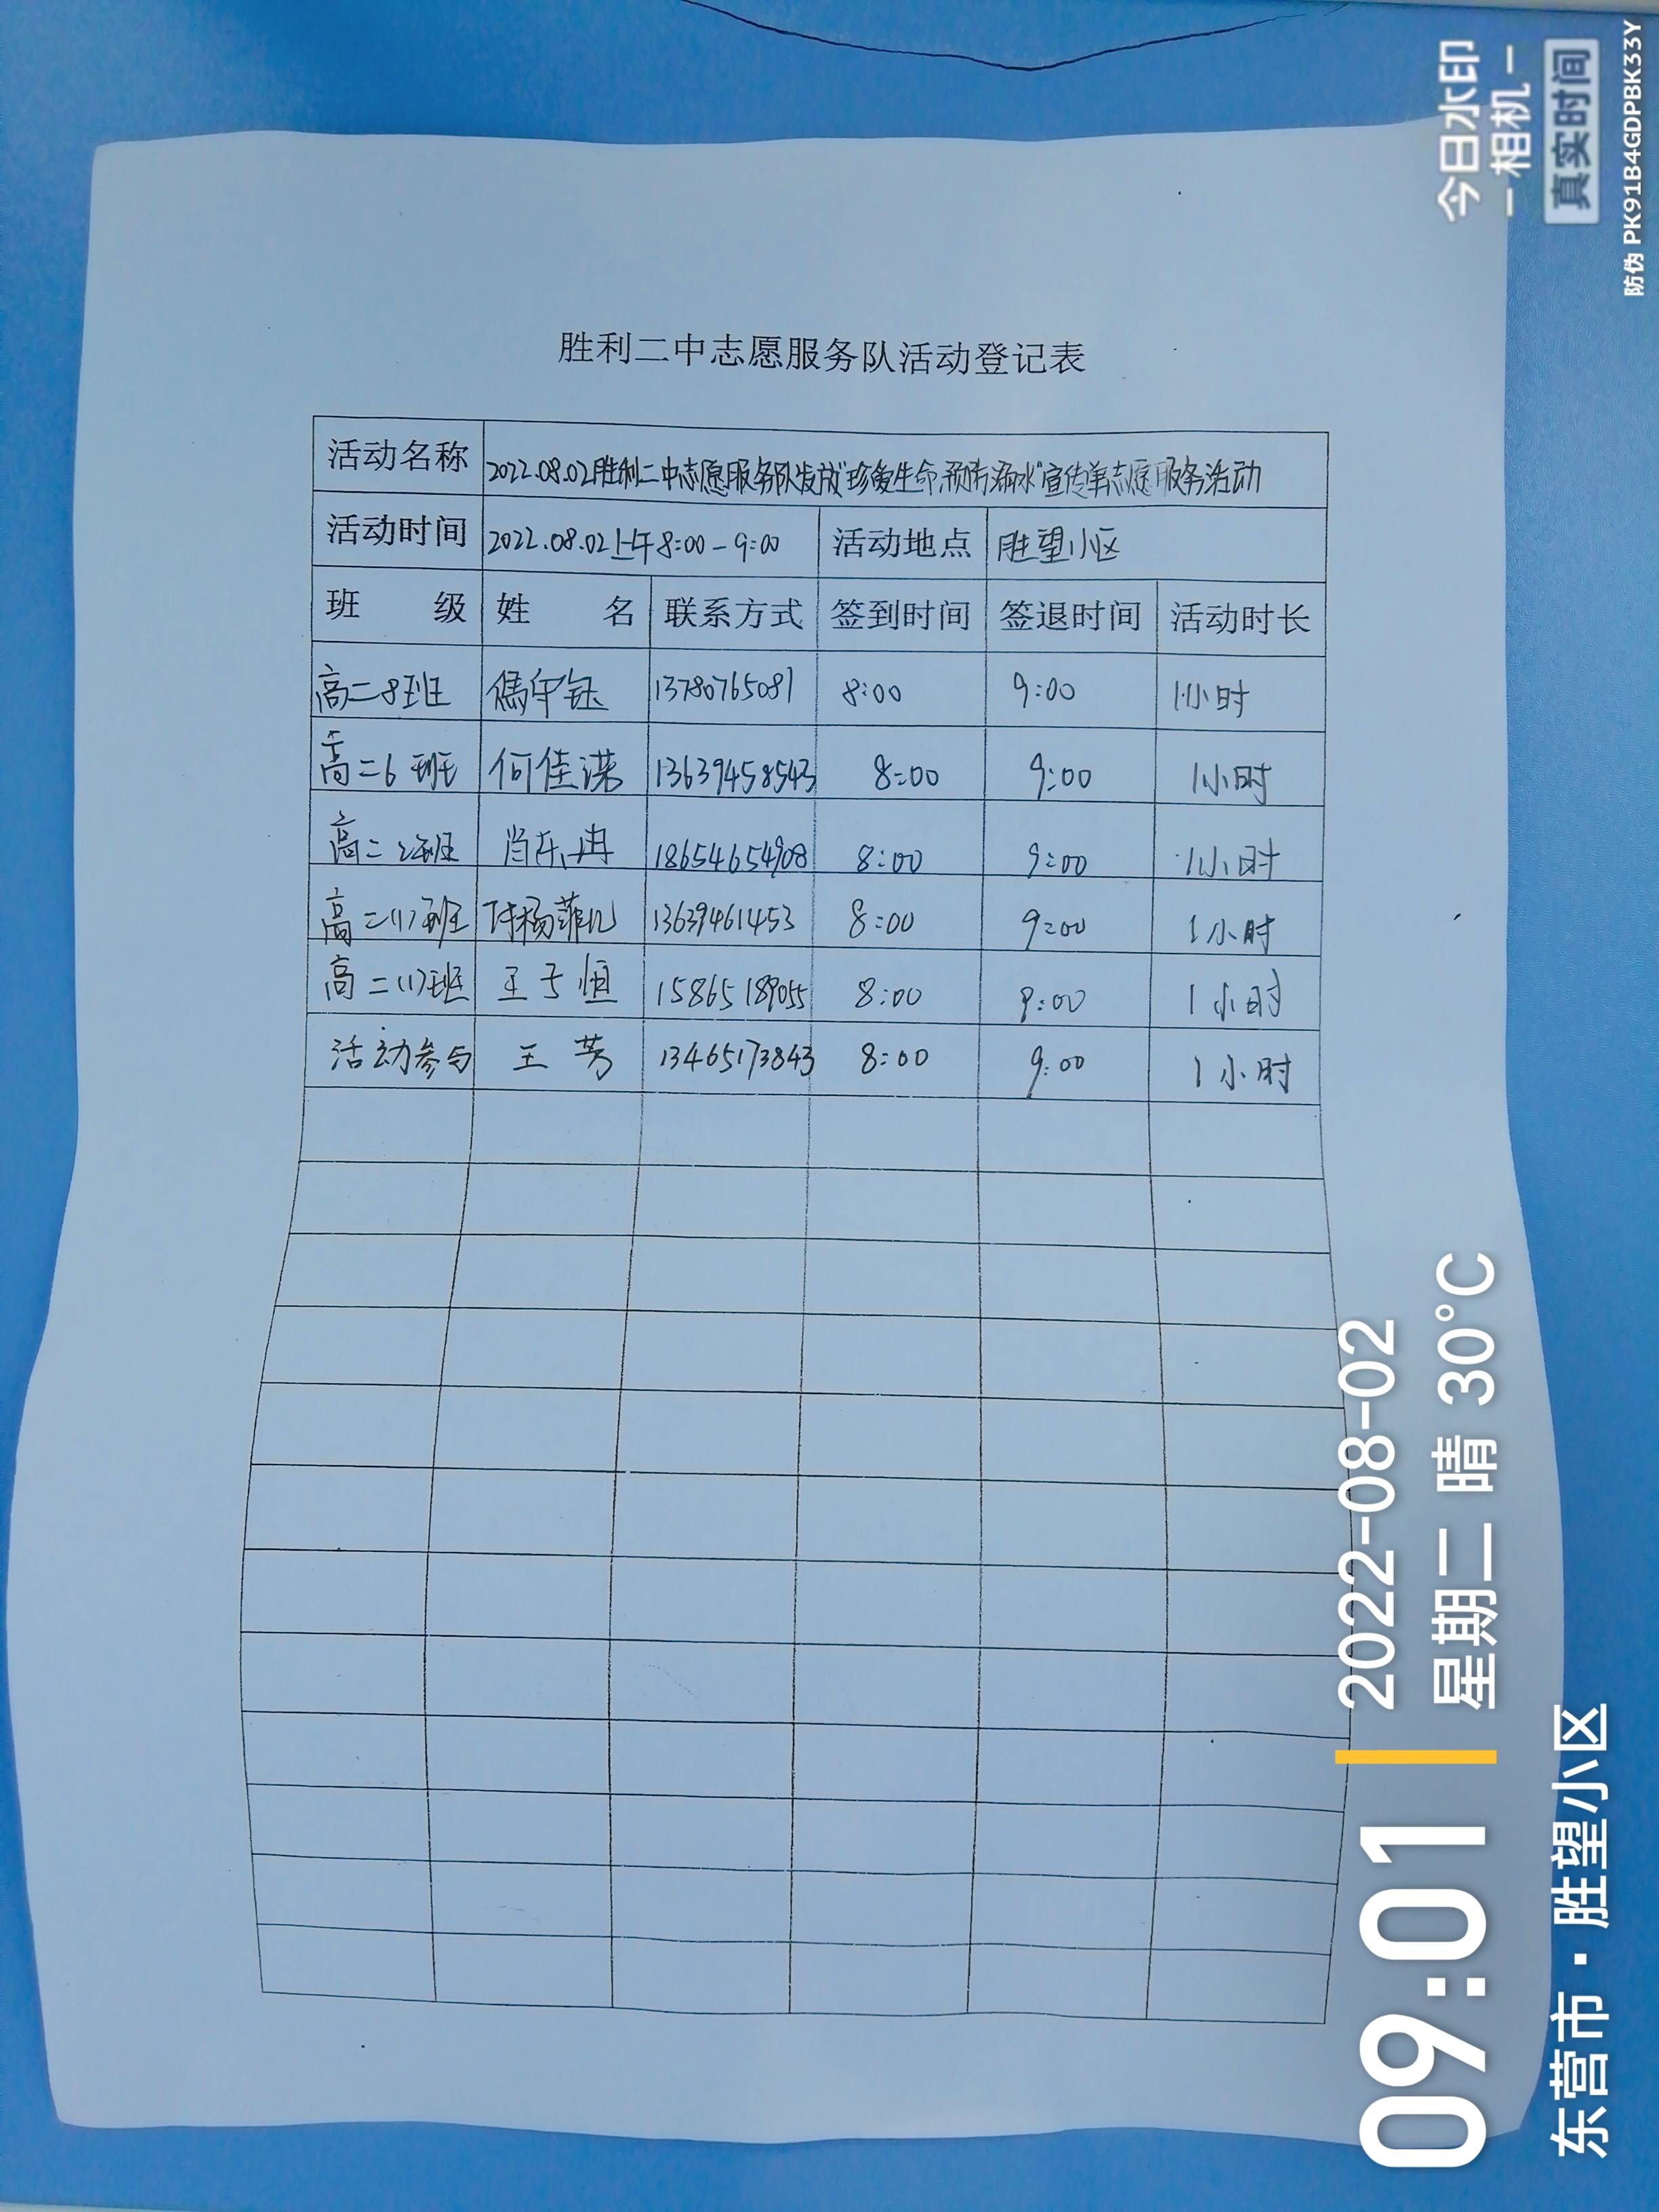 胜利二中志愿服务队活动登记表
活动名称 2022.08.02胜利二中志愿服务队发放"珍爱生命,预防溺水"宣传单志愿服务活动
活动时间 2022.08.02上午8:00-9:00 活动地点 胜望小区
班 级 姓 名 联系方式 签到时间 签退时间 活动时长
高二8班 13780765081 8:00 9:00 1小时
高二6班 何佳諾 13639458543 8:00 9:00 1小时
高二2班 肖乐冉 18654654908 8:00 9:00 1小时
高二(1)班 杨菲儿 13639461453 8:00 9:00 1小时
高二(1)班 王子恒 15865189055 8:00 9:00 1小时
活动参与 王芳 13465173843 8:00 9:00 1小时
今日水印
-相机-
真实时间
防伪 PK91B4GDPBK33Y
09:01
2022-08-02
星期二 晴 30°C
东营市·胜望小区